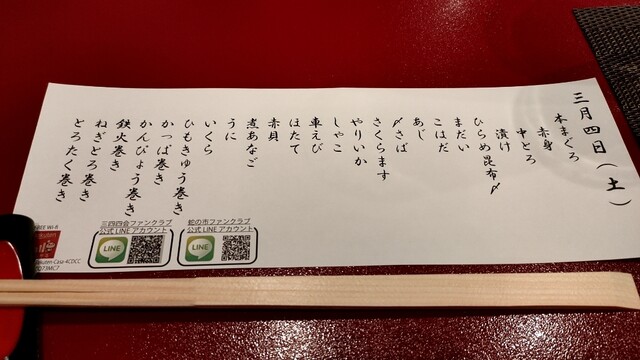 三月四日（土）
本まぐろ
赤身
中とろ
漬け
ひらめ昆布〆
まだい
こはだ
あじ
〆さば
さくらます
やりいか
しゃこ
車えび
ほたて
赤貝
煮あなご
うに
いくら
ひもきゅう巻き
かっぱ巻き
かんぴょう巻き
鉄火巻き
ねぎとろ巻き
とろたく巻き
三四四会ファンクラブ
公式LINEアカウント
LINE
蛇の市ファンクラブ
公式LINEアカウント
LINE